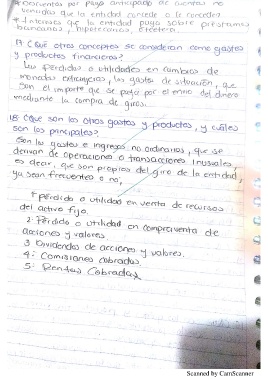 *Descuentos por pago anticipado de cuentas no
vencidas que la entidad concede o le conceden
* Intereses que la entidad paga sobre préstamos
bancarios, hipotecarios, etcétera.
17. ¿Qué otros conceptos se consideran como gastos
y productos financieros?
Las pérdidas o utilidades en cambios de
monedas extranjeras, los gastos de situación, que
son el importe que se paga por el envío del dinero
mediante la compra de giros.
18. ¿Qué son los otros gastos y productos, y cuáles
son los principales?
Son los gastos e ingresos no ordinarios, que se
derivan de operaciones o transacciones inusuales,
es decir, que son propios del giro de la entidad,
ya sean frecuentes o no,
1 Pérdida o utilidad en venta de recursos
del activo fijo.
2. Pérdida o utilidad en compraventa de
acciones y valores
3 Dividendos de acciones y valores.
4: Comisiones cobradas.
5: Rentas Cobradas
Scanned by CamScanner